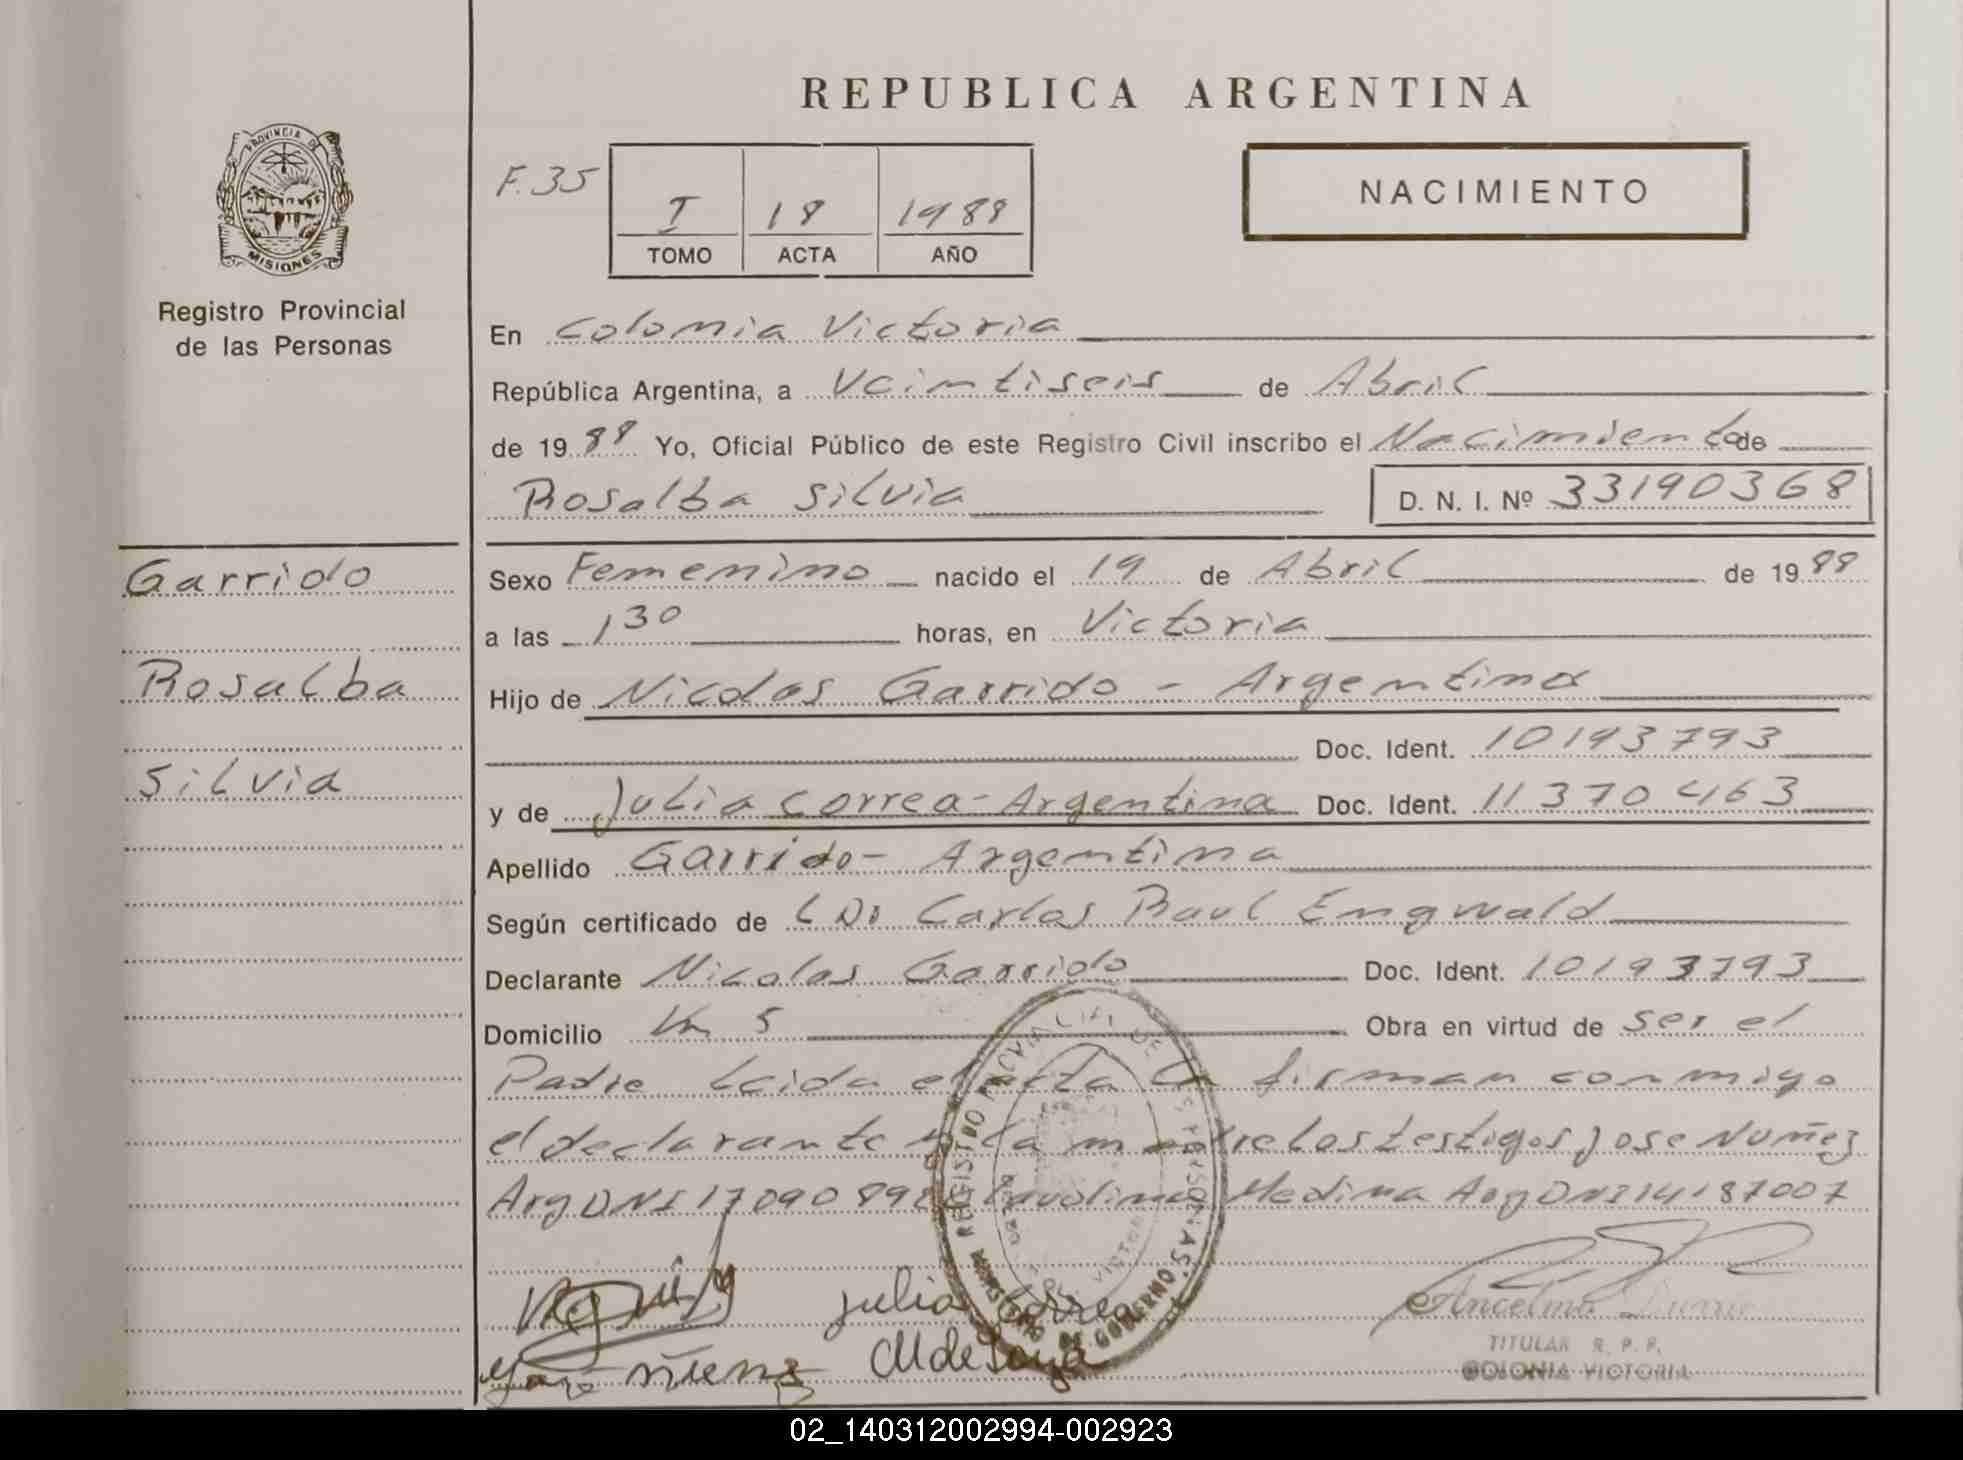 REPUBLICA ARGENTINA
PROVINCIA DE
MISIONES
Registro Provincial
de las Personas
F. 35
I 18 1988
TOMO ACTA AÑO
NACIMIENTO
En Colonia Victoria
República Argentina, a Veintiseis de Abril
de 19 88 Yo, Oficial Público de este Registro Civil inscribo el Nacimiento de
Rosalba Silvia D. N. I. Nº 33190368
Garrido
Rosalba
Silvia
Sexo Femenino nacido el 19 de Abril de 19 88
a las 1 30 horas, en Victoria
Hijo de Nicolas Garrido - Argentina
Doc. Ident. 10193793
y de Julia Correa - Argentina Doc. Ident. 11370463
Apellido Garrido - Argentina
Según certificado de Dr Carlos Raul Engwald
Declarante Nicolas Garrido Doc. Ident. 10193793
Domicilio Km 5 Obra en virtud de ser el
Padre Leida el acta la firman conmigo
el declarante y la madre los testigos Jose Nuñez
Arg DNI 1709089 Medina Arg DNI 14187007
REGISTRO PROVINCIAL DE LAS PERSONAS
MINISTERIO DE GOBIERNO
VICTORIA
julia Correa
Anselmo
TITULAR R. P. P.
COLONIA VICTORIA
02_140312002994-002923